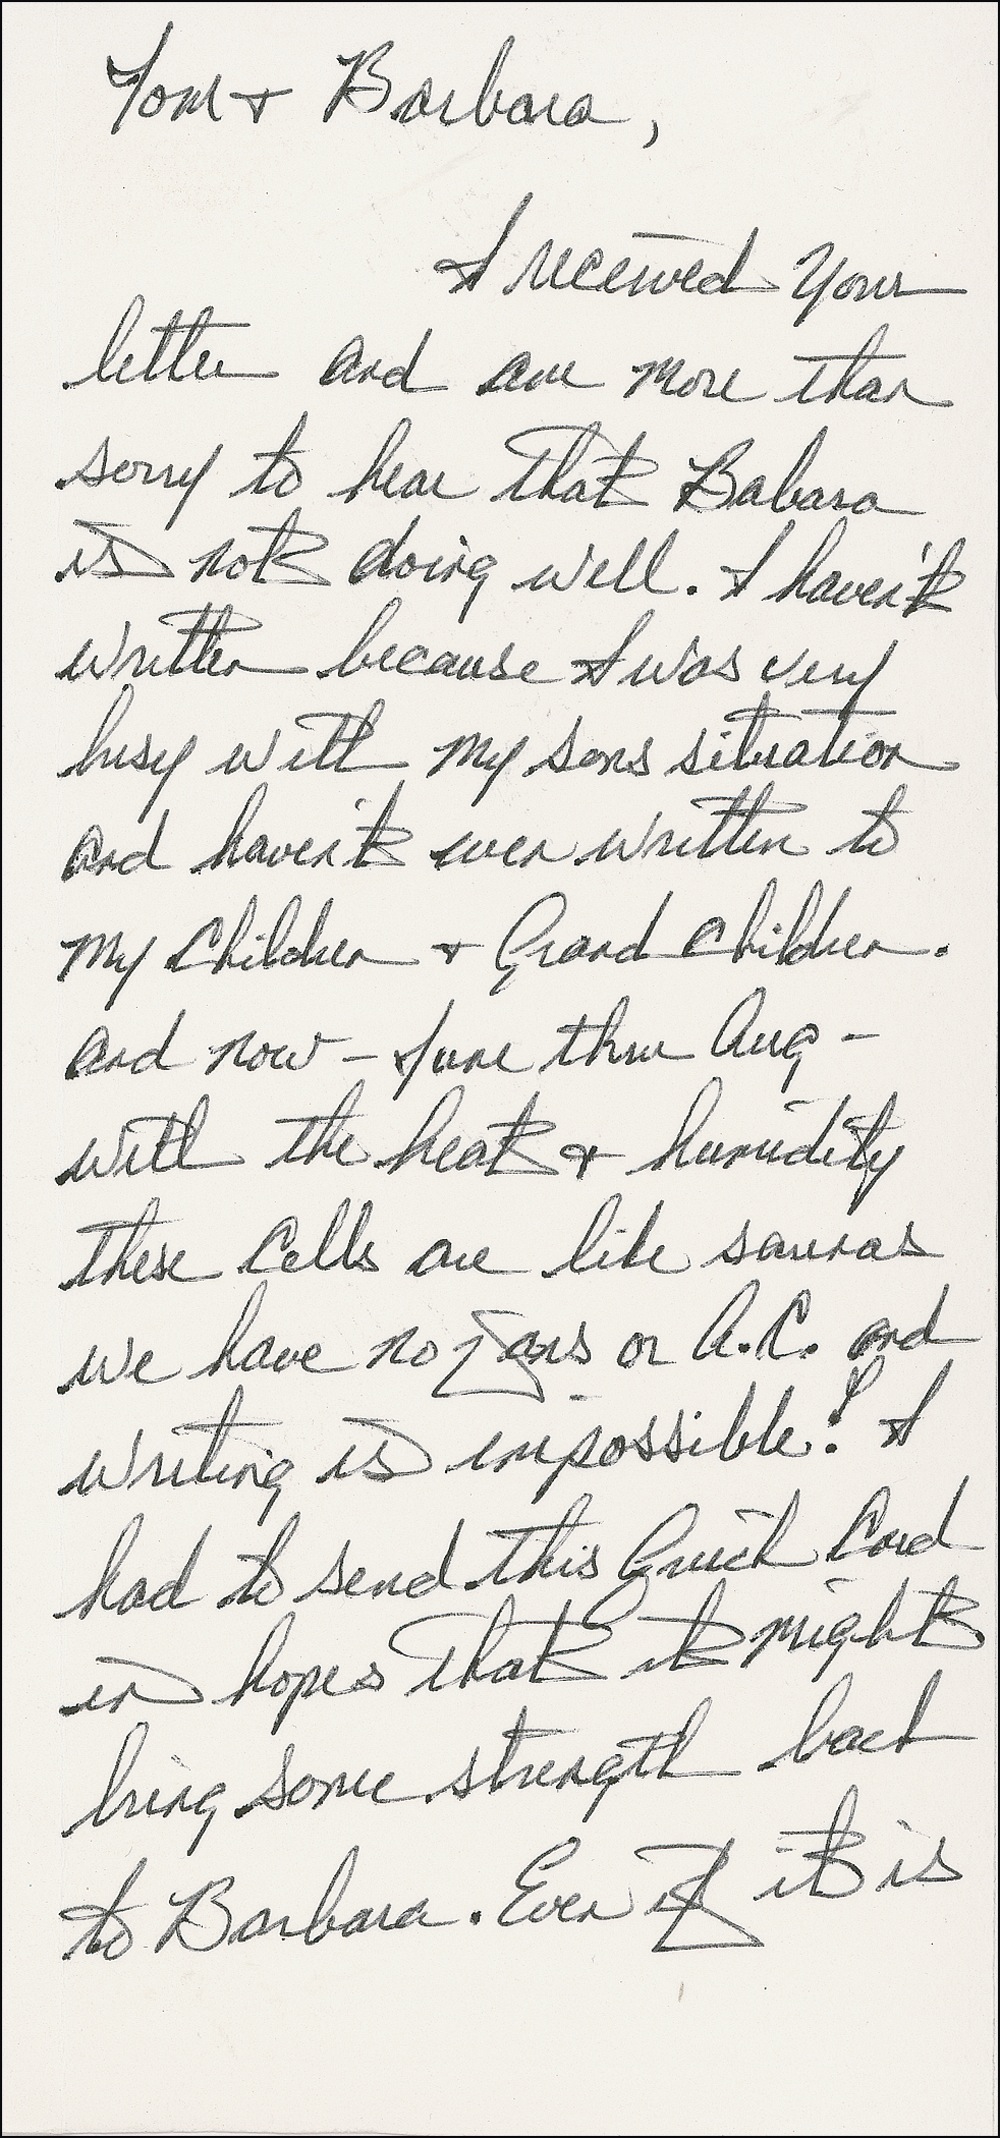 Tom + Barbara,
I received your
letter and am more than
sorry to hear that Babara
is not doing well. I haven't
written because I was very
busy with my sons situation
and haven't even written to
My Children + Grand children.
and now - June thru Aug -
with the heat + humidity
these Cells are like saunas
we have no fans or A.C. and
writing is impossible! I
had to send this Quick Card
in hopes that it might
bring some strength back
to Barbara. Even if it is